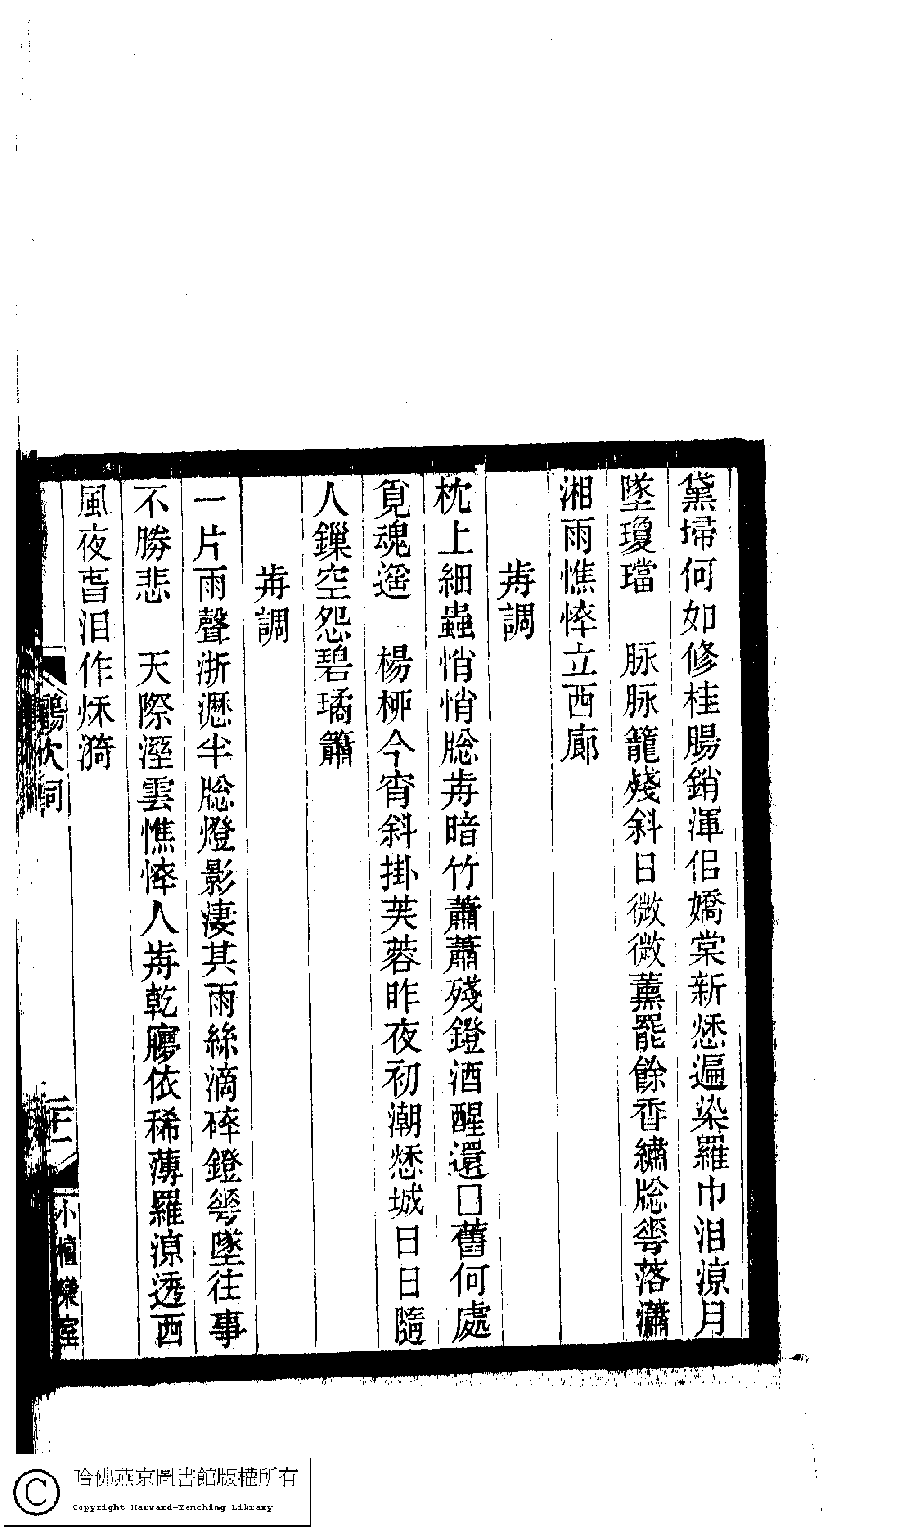 黛掃何如修桂腸銷渾侶嬌棠新愁遍染羅巾泪涼月
墜瓊璫　脉脉籠殘斜日微微薰罷餘香繡牕雩落瀟
湘雨憔悴立西廊
歬調
枕上細蟲悄悄牕歬暗竹蕭蕭殘鐙酒醒還囗舊何處
覓魂遥　楊栁今宵斜掛芙蓉昨夜初潮愁城日日隨
人鏁空怨碧璚簫
歬調
一片雨聲浙瀝半牕燈影淒其雨絲滴碎鐙雩墜往事
不勝悲　天際溼雲憔悴人歬乾㝱依稀薄羅涼透西
風夜㫺泪作秌漪
詞
小檀欒室
哈佛燕京圖書館版權所有
Copyright Harvard-Yenching Library